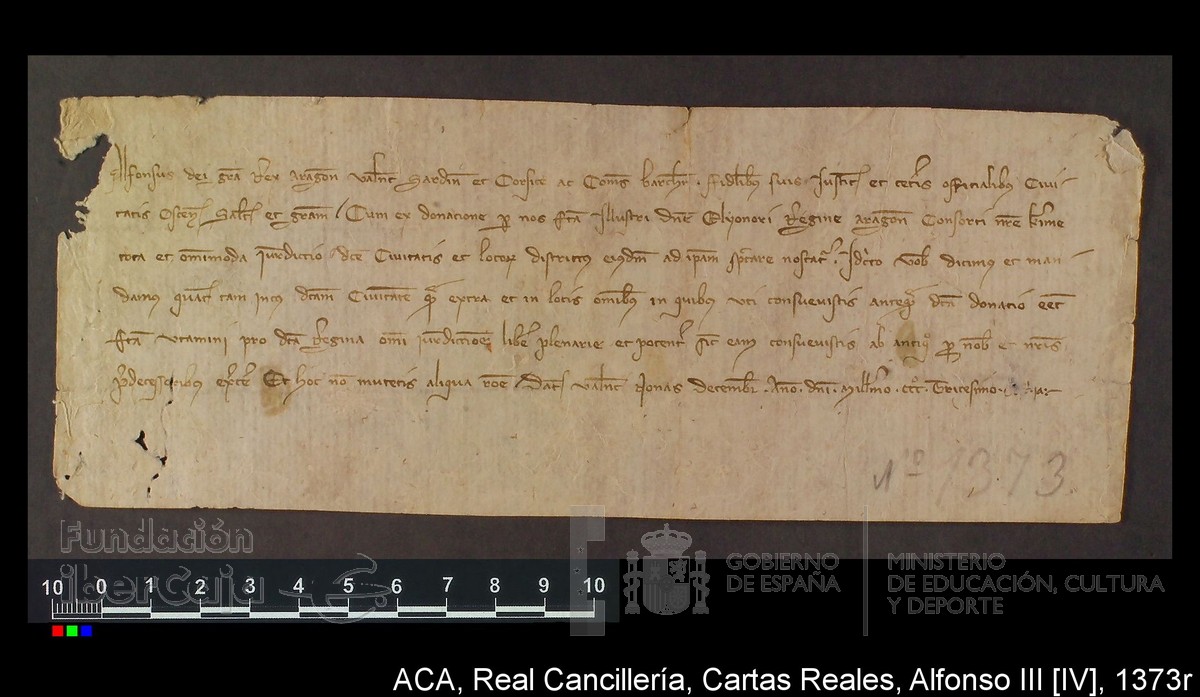 Alfonsus dei gra Rex Aragon Valent Sardin et Corsice ac Comes barchn fidelibus suis Justic et ceteris officialibus Civi
tatis Oscen Salt et gram Cum ex donacione per nos fca Illustri dne Elyonori Regine Aragon Consorti nre kme
tota et omimoda Jurdiccio dce Civitatis et locor districtus eiusdm ad ipam spectare noscatr Idcirco vob dicimus et man
damus quat tam intus dcam Civitatem qm extra et in locis omibus in quibus uti consuevistis anteqm dca donacio eet
fca utamini pro dca Regina omi iurdiccione libere plenarie et potenter sic eam consuevistis ab antiquo per nob et nris
predecessoribus exercere Et hoc non mutetis aliqua roe Dat Valent Nonas decembr Ano dni Millimo ccc Tricesimo
Nº 1373
Fundación
iberCaja
GOBIERNO
DE ESPAÑA
MINISTERIO
DE EDUCACIÓN, CULTURA
Y DEPORTE
10 0 1 2 3 4 5 6 7 8 9 10
ACA, Real Cancillería, Cartas Reales, Alfonso III [IV], 1373r